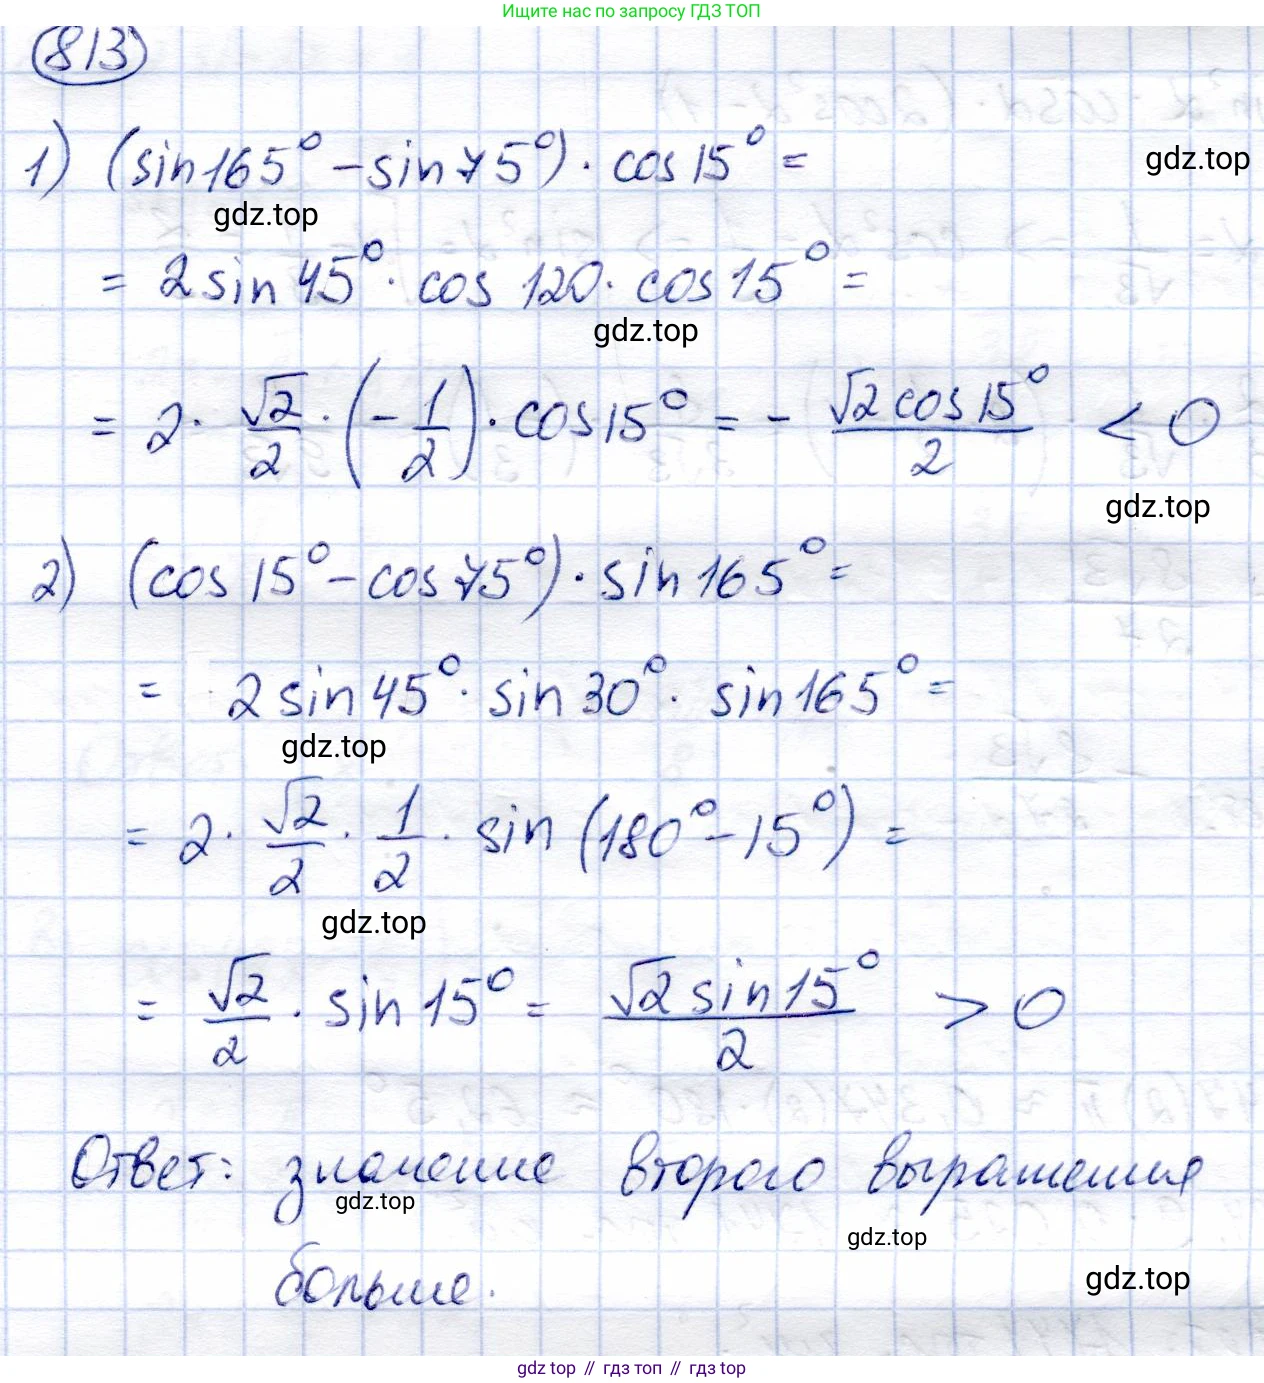 Ищите нас по запросу ГДЗ ТОП
813
1) (sin165° – sin75°) · cos15° =
gdz.top
gdz.top
= 2sin45° · cos 120 · cos15° =
gdz.top
= 2 · √2/2 · (– 1/2) · cos15° = – √2 cos15°/2 < 0
gdz.top
2) (cos15° – cos75°) · sin165° =
= 2sin45° · sin30° · sin165° =
gdz.top
= 2 · √2/2 · 1/2 · sin(180° – 15°) =
gdz.top
= √2/2 · sin15° = √2 sin15°/2 > 0
Ответ: значение второго выражения
gdz.top
gdz.top
больше.
gdz.top
gdz top // гдз топ // gdz top